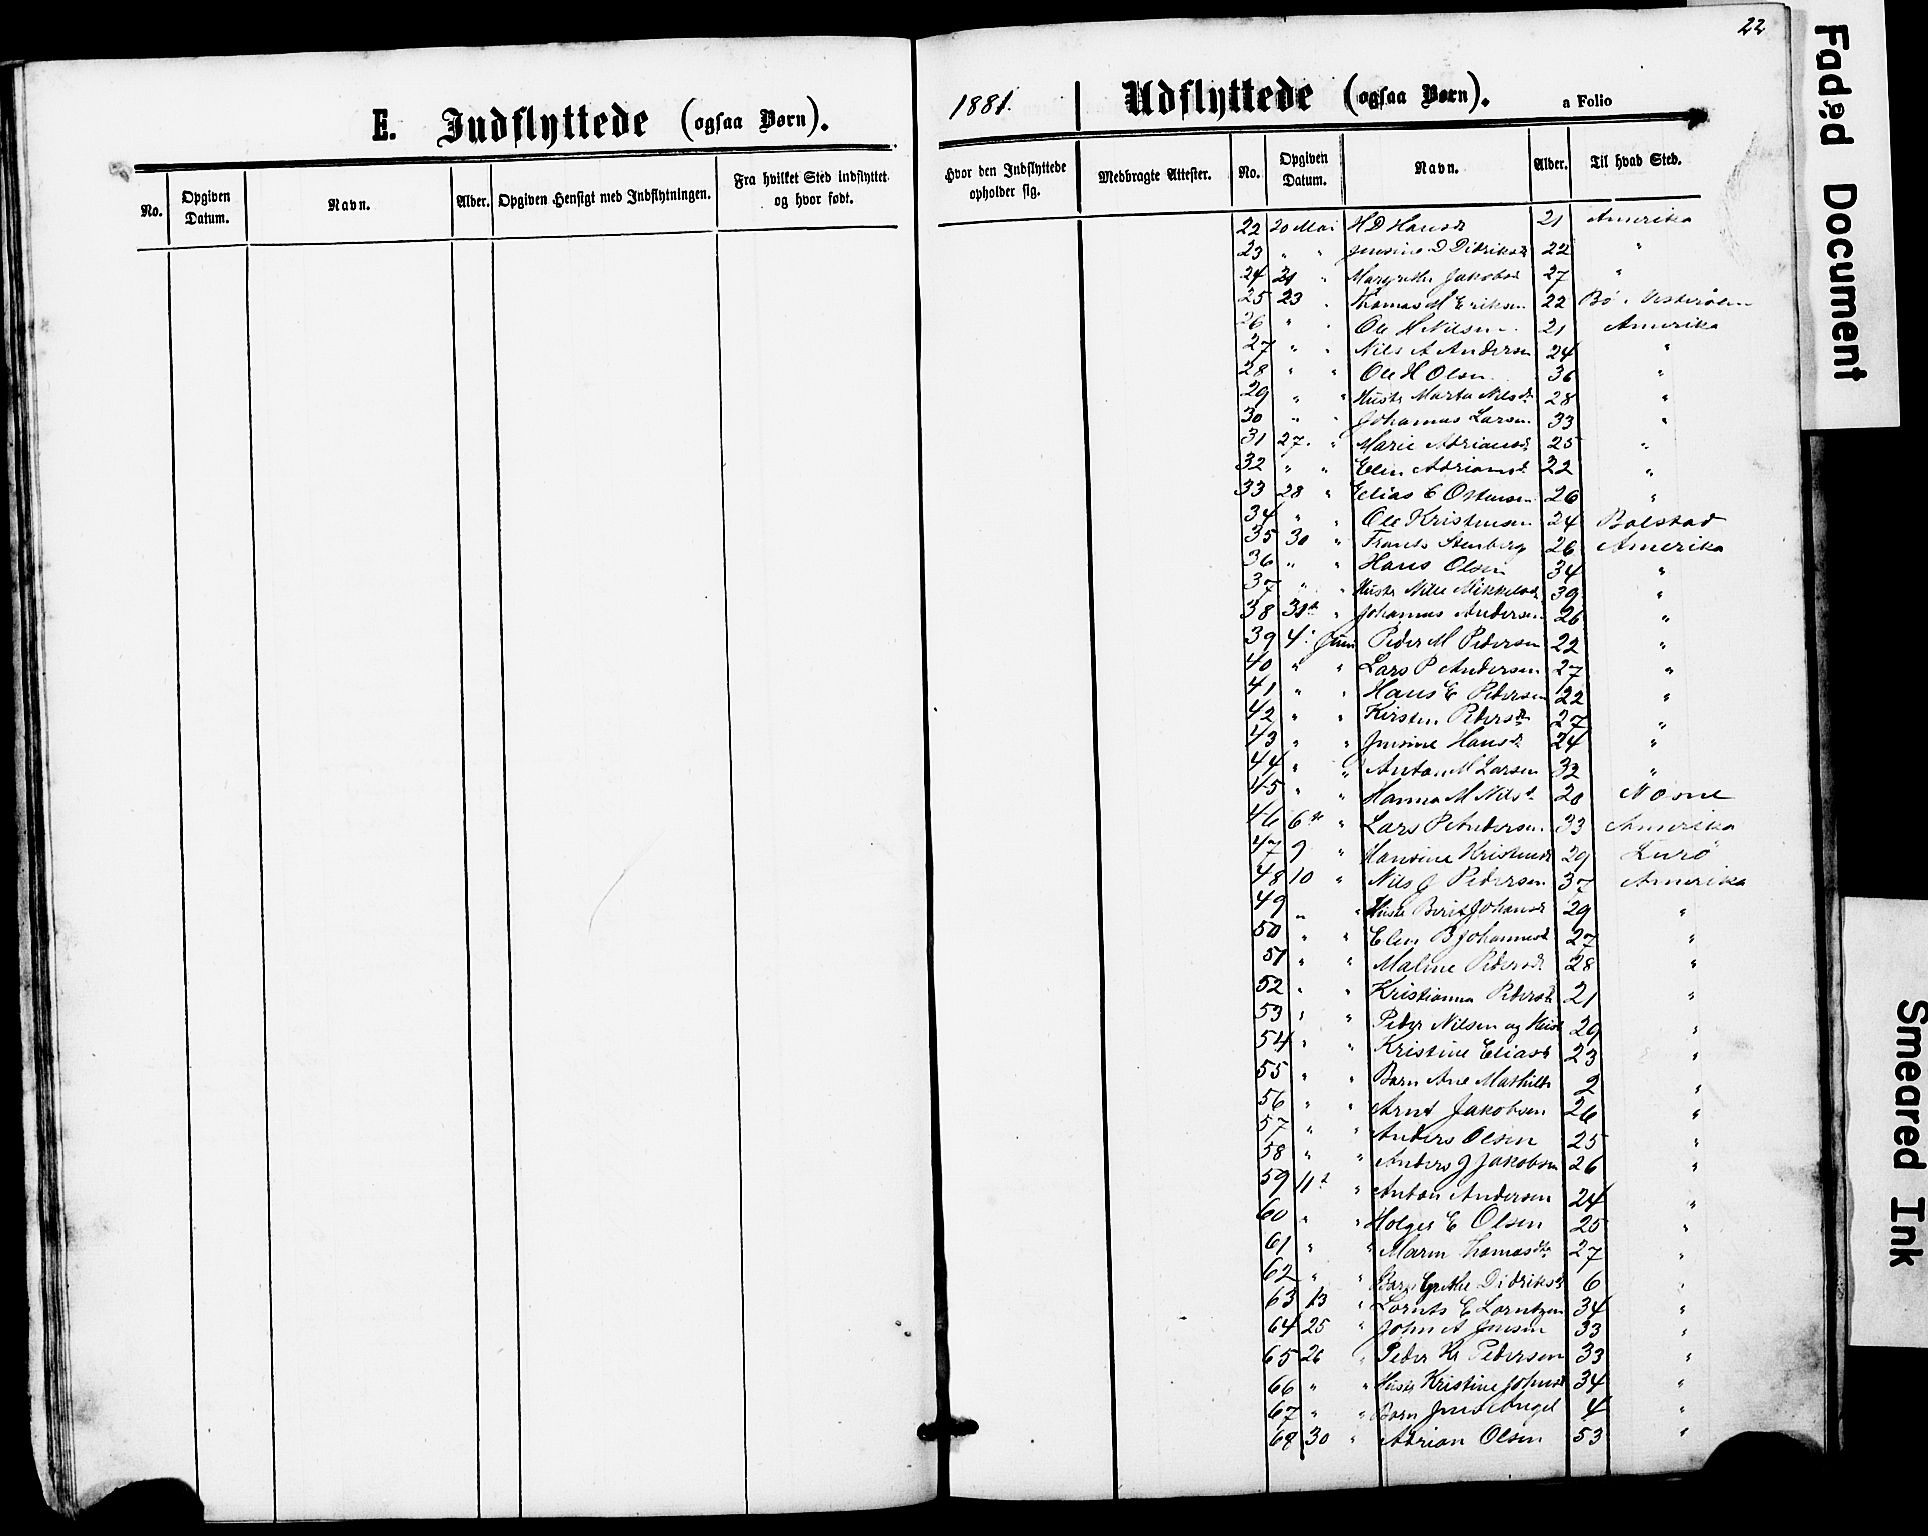 22
1881.
E. Indflyttede (ogsaa Børn).
Udflyttede (ogsaa Børn). a Folio
No. Opgiven Datum. Navn. Alder. Opgiven Hensigt med Indflytningen. Fra hvilket Sted indflyttet og hvor født. Hvor den Indflyttede opholder sig. Medbragte Attester. No. Opgiven Datum. Navn. Alder. Til hvad Sted.
22 20 Mai H D Hansd 21 Amerika
23 " " Jensine D Didriksd 22 "
24 21 " Margrethe Jakobsd 27 "
25 23 " Thomas M Eriksen 22 Bø i Vesteraalen
26 " " Ole H Nilsen 21 Amerika
27 " " Nils A Andersen 24 "
28 " " Ole H Olsen 36 "
29 " " Hustr Marta Nilsd 28 "
30 " " Johannes Larsen 33 "
31 27. " Marie Adriansd 25 "
32 " " Elen Adriansd 22 "
33 28 " Elias E Ostensen 26 "
34 " " Ole Kristensen 24 Bolstad
35 30 " Frants Stenberg 26 Amerika
36 " " Hans Olsen 34 "
37 " " Hustr Nille Mikkelsd 39 "
38 31te " Johannes Andersen 26 "
39 4. Juni Peder M Pedersen 22 "
40 " " Lars P Andersen 27 "
41 " " Hans E Pedersen 22 "
42 " " Kirsten Pedersd 27 "
43 " " Jensine Hansd 24 "
44 " " Anton M Larsen 32 "
45 " " Hanna M Nilsd 20 Næsne
46 6te " Lars P Andersen 33 Amerika
47 9 " Hansine Kristensd 29 Lurø
48 10 " Nils J Pedersen 37 Amerika
49 " " Hustr Berit Johansd 29 "
50 " " Elen B Johannesd 27 "
51 " " Maline Pedersd 28 "
52 " " Kristianna Pedersd 21 "
53 " " Peder Nilsen og Hust 29 "
54 " " Kristine Eliasd 23 "
55 " " Barn Ane Mathilde 2 "
56 " " Arnt Jakobsen 26 "
57 " " Anders Olsen 25 "
58 " " Anders J Jakobsen 26 "
59 11t " Anton Andersen 24 "
60 " " Holger E Olsen 25 "
61 " " Maren Thomasdtr 27 "
62 " " Barn Grethe Didriksd 6 "
63 13 " Lornts E Lorntzen 34 "
64 25 " John A Jensen 33 "
65 26 " Peder Kr Pedersen 33 "
66 " " Hustr Kristine Johnsd 34 "
67 " " Barn Jens Angel 4 "
68 30 " Adrian Olsen 53 "
Faded Document
Smeared Ink